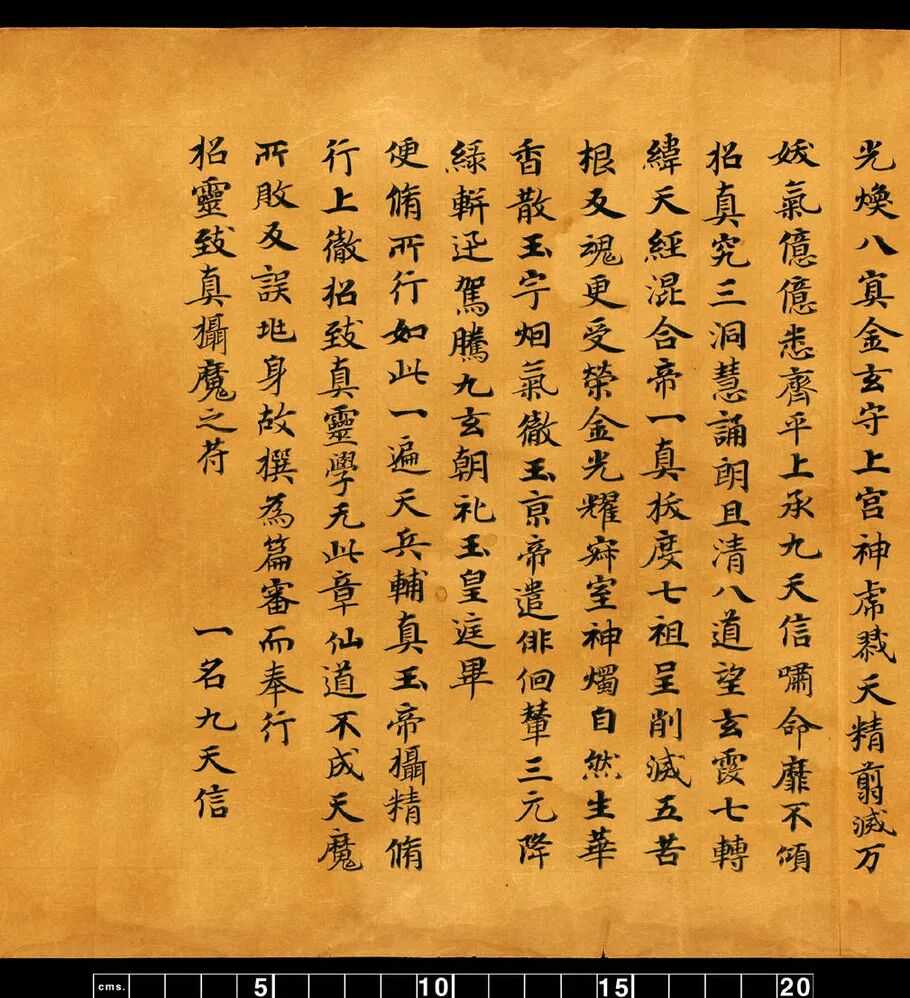 光煥八寘金玄守上宮神虎戮天精翦滅万
妖氣億億悉齊平上承九天信嘯命靡不傾
招真究三洞慧誦朗且清八道望玄霞七轉
緯天經混合帝一真拔度七祖呈削滅五苦
根反魂更受榮金光耀冥室神燭自然生華
香散玉宇烟氣徹玉京帝遣俳佪輦三元降
綠軿迅駕騰九玄朝礼玉皇庭畢
便脩所行如此一遍天兵輔真玉帝攝精脩
行上徹招致真靈學无此章仙道不成天魔
所敗反誤地身故撰為篇審而奉行
招靈致真攝魔之苻 一名九天信
cms. 5 10 15 20